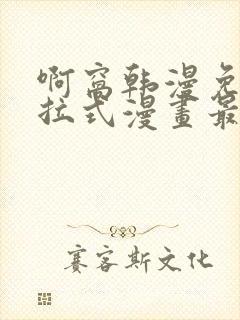 啊窩韩漫免
拉式漫畫最
赛客斯文化